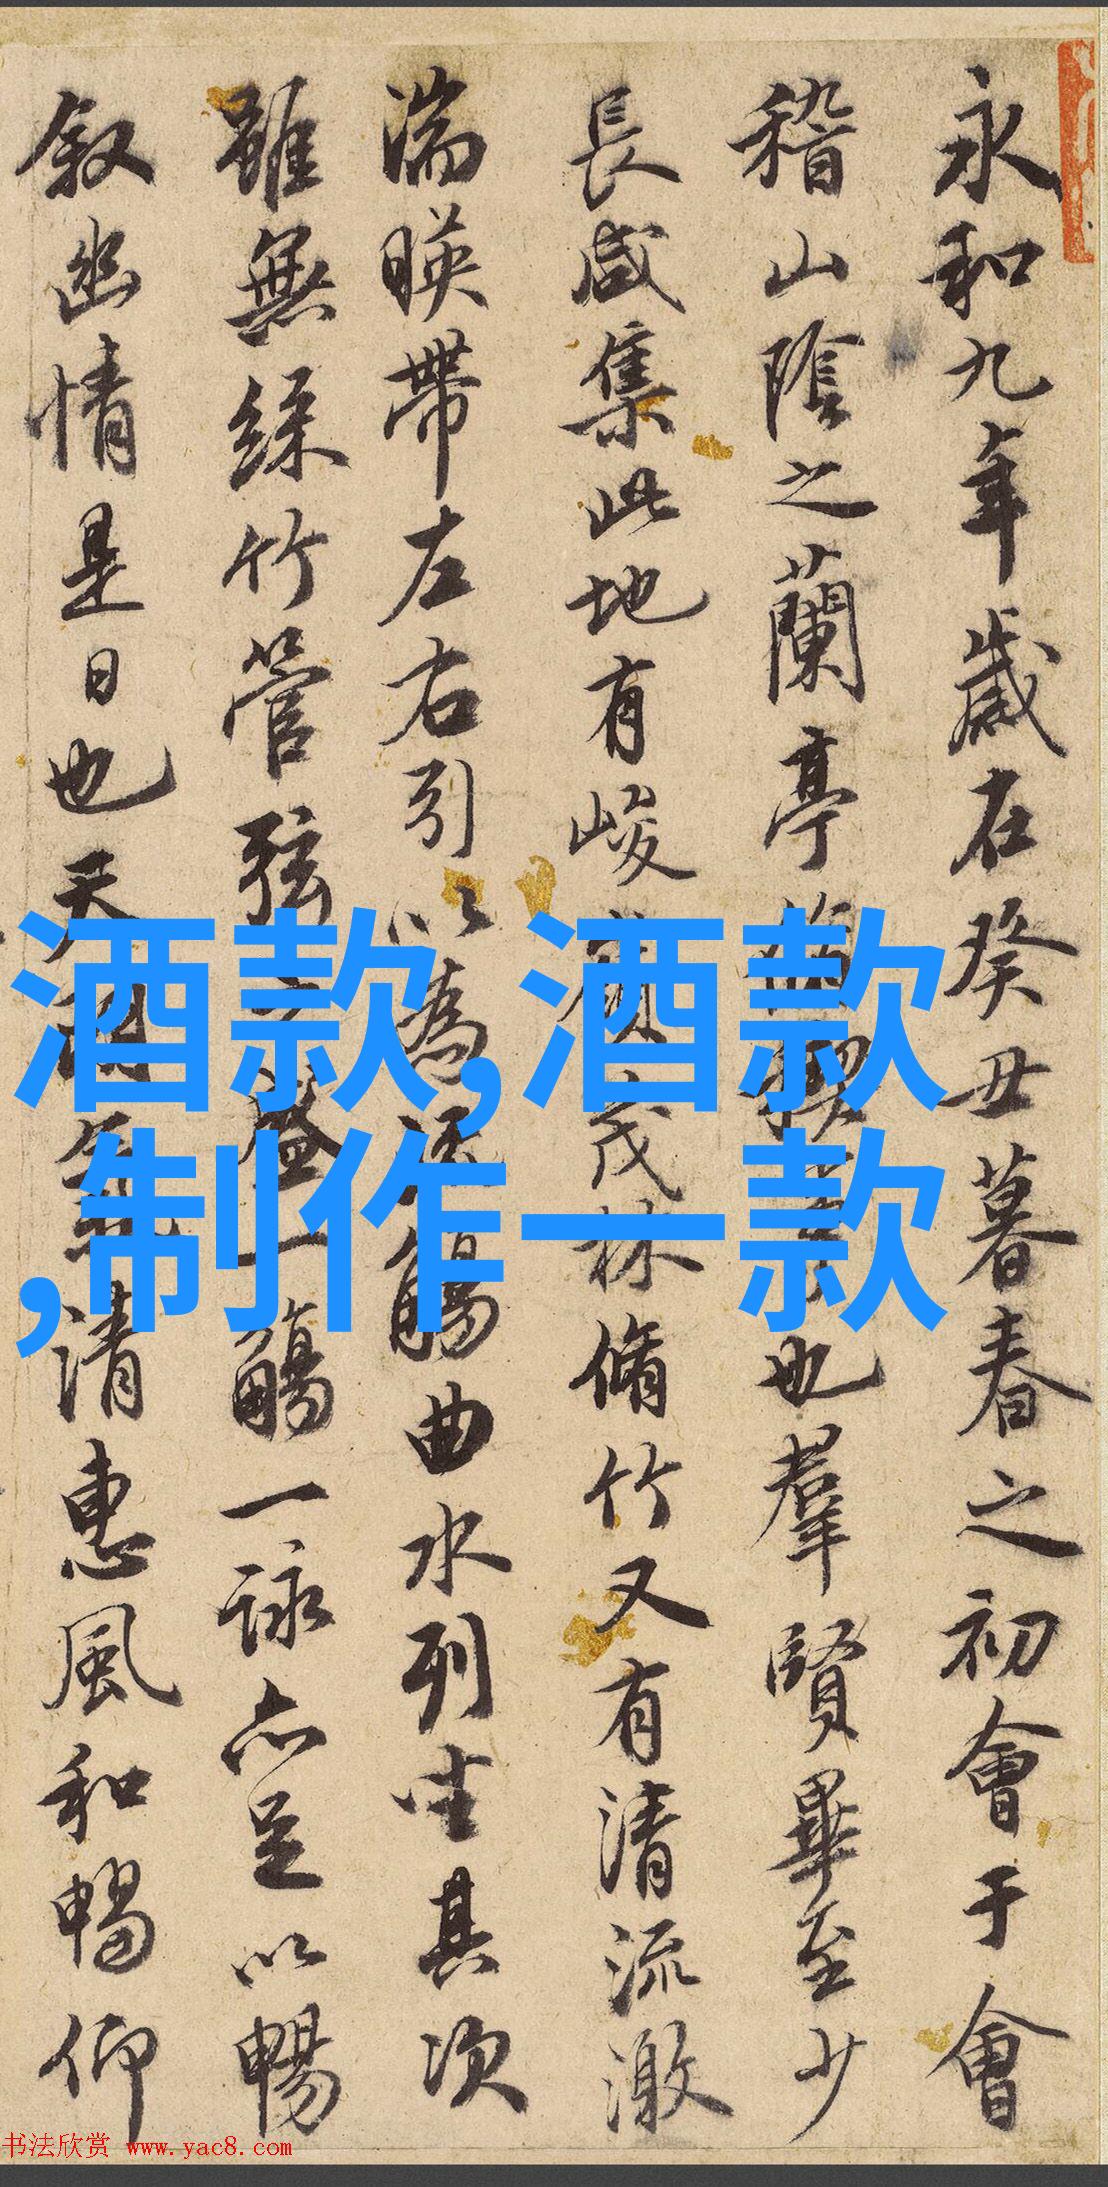 永和九年歲在癸丑暮春之初會于會
稽山陰之蘭亭脩禊也羣賢畢至少
長咸集此地有峻領茂林脩竹又有清流激
湍暎帶左右引以為流觴曲水列坐其次
雖無絲竹管弦之盛一觴一詠亦足以暢
叙幽情是日也天朗氣清惠風和暢仰
酒款,酒款
,制作一款
书法欣赏 www.yac8.com